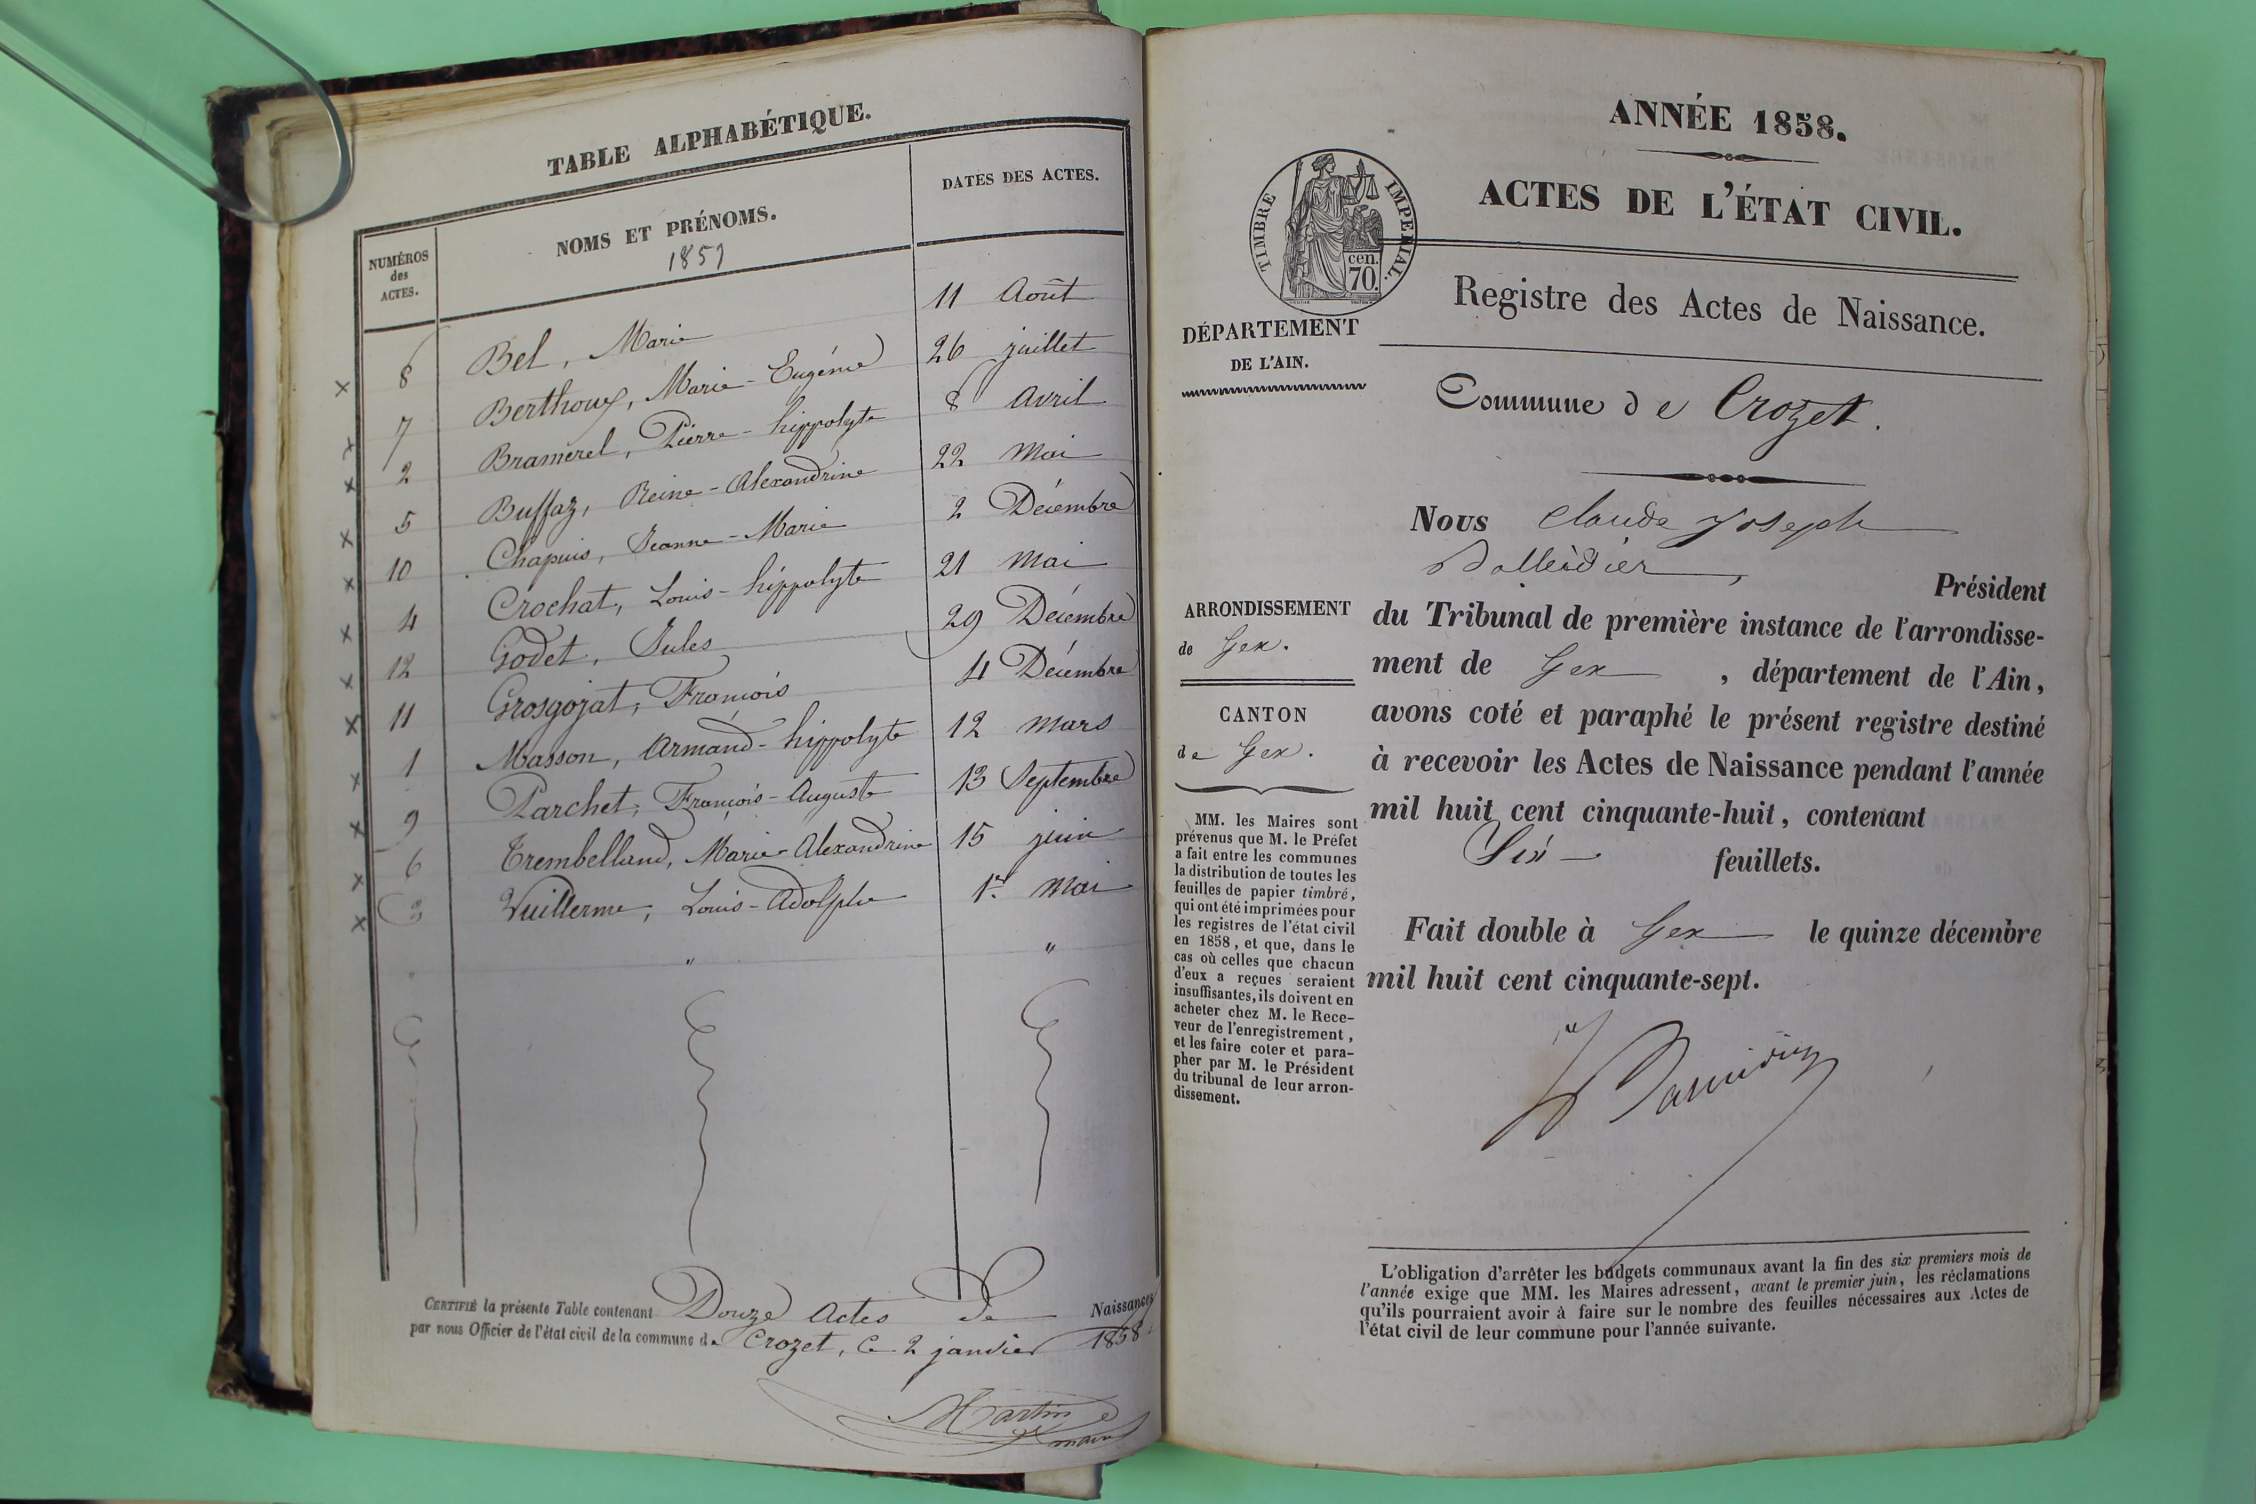 TABLE ALPHABÉTIQUE.
NUMÉROS des ACTES.
NOMS ET PRÉNOMS.
DATES DES ACTES.
1857
8 Bel, Marie 11 Août
7 Berthoux, Marie-Eugénie 26 juillet
2 Bramerel, Pierre-hippolyte 8 Avril
5 Buffaz, Reine-Alexandrine 22 Mai
10 Chapuis, Jeanne-Marie 2 Décembre
4 Crochat, Louis-hippolyte 21 Mai
12 Godet, Jules 29 Décembre
11 Grosgojat, François 4 Décembre
1 Masson, Armand-hippolyte 12 Mars
9 Parchet, François-Auguste 13 Septembre
6 Trembelland, Marie-Alexandrine 15 juin
3 Vuillerme, Louis-Adolphe 1er Mai
" "
CERTIFIÉ la présente Table contenant Douze Actes De Naissances
par nous Officier de l'état civil de la commune de Crozet, Ce 2 janvier 1858.
Martin
maire
ANNÉE 1858.
ACTES DE L'ÉTAT CIVIL.
TIMBRE IMPERIAL.
cen.
70.
Registre des Actes de Naissance.
DÉPARTEMENT
DE L'AIN.
Commune de Crozet.
ARRONDISSEMENT
de Gex.
CANTON
de Gex.
MM. les Maires sont
prévenus que M. le Préfet
a fait entre les communes
la distribution de toutes les
feuilles de papier timbré,
qui ont été imprimées pour
les registres de l'état civil
en 1858, et que, dans le
cas où celles que chacun
d'eux a reçues seraient
insuffisantes, ils doivent en
acheter chez M. le Rece-
veur de l'enregistrement,
et les faire coter et para-
pher par M. le Président
du tribunal de leur arron-
dissement.
Nous Claude Joseph
Président
du Tribunal de première instance de l'arrondisse-
ment de Gex, département de l'Ain,
avons coté et paraphé le présent registre destiné
à recevoir les Actes de Naissance pendant l'année
mil huit cent cinquante-huit, contenant
Six feuillets.
Fait double à Gex le quinze décembre
mil huit cent cinquante-sept.
L'obligation d'arrêter les budgets communaux avant la fin des six premiers mois de
l'année exige que MM. les Maires adressent, avant le premier juin, les réclamations
qu'ils pourraient avoir à faire sur le nombre des feuilles nécessaires aux Actes de
l'état civil de leur commune pour l'année suivante.